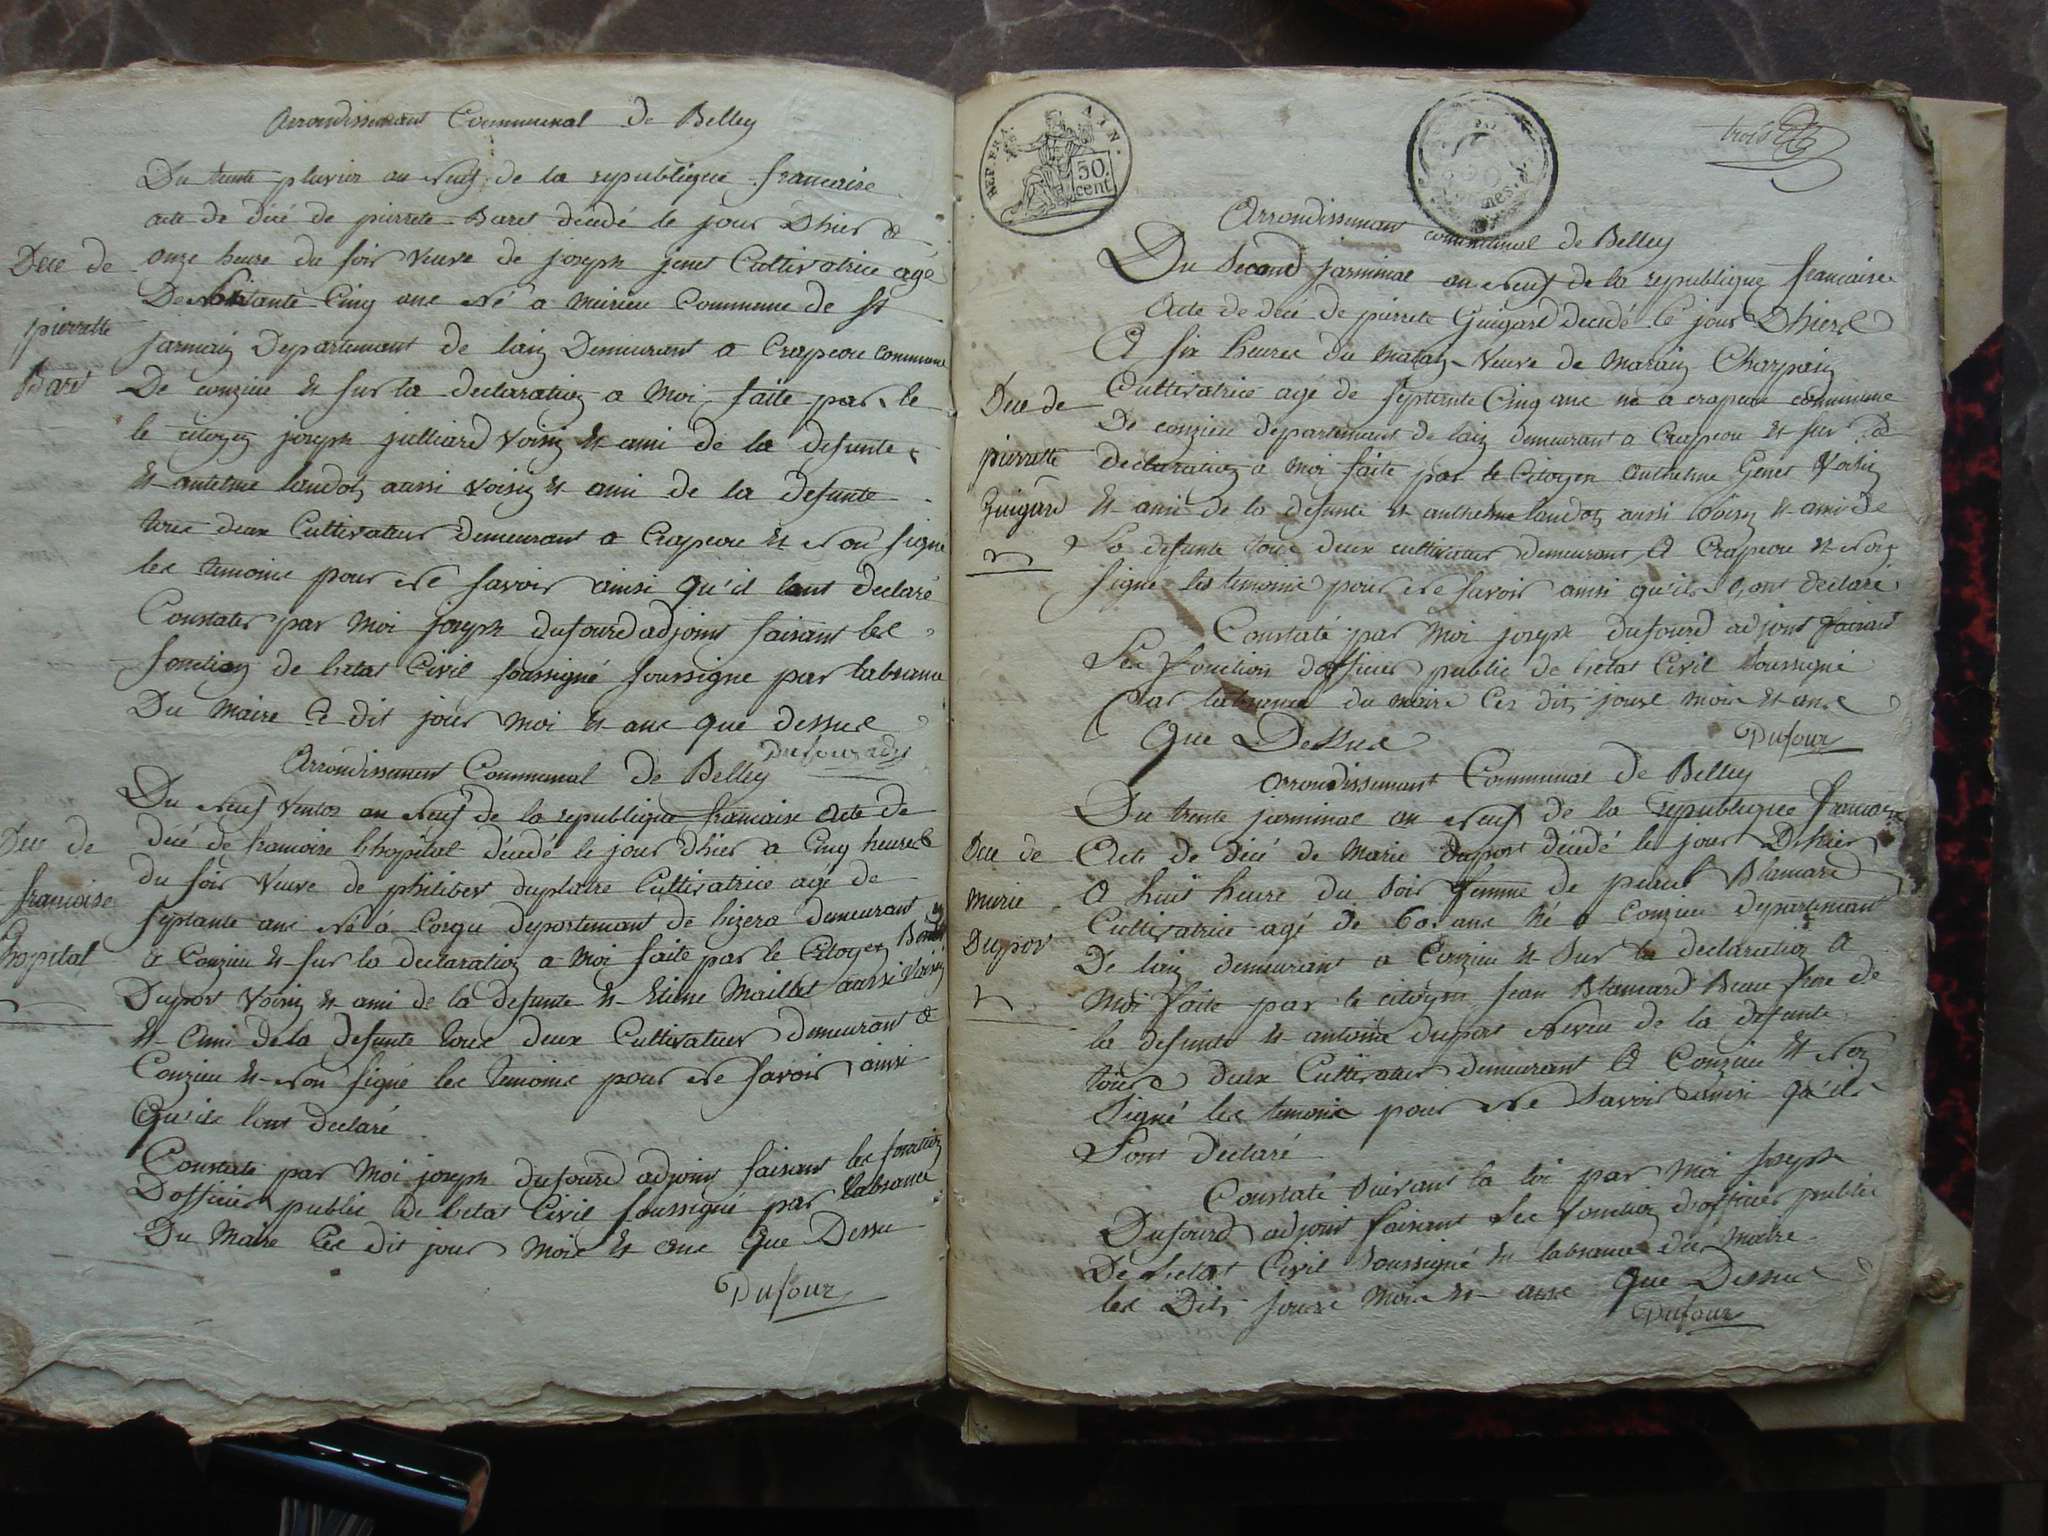 Arrondissement Communal de Belley
Du trente pluvios an Neuf de la republique francaise
acte de dicé de pierrete Baret decedé le jour Dhier a
onze heure du soir Veuve de joseph jenet Cultivatrice agé
De Cinq anc Né a Murieu Commune de St
jarmain Departement de lain Demeurant a Crapeou commune
De conzieu et sur la declaration a Moi faite par le
le citoyen joseph julliard Voisin et ami de la defunte
et antelme laudoz aussi voisin et ami de la defunte
touc deux Cultivateur demeurant a Crapeou et Non signe
lec temoinc pour Ne savoir ainsi qu'il lont declaré
Constater par Moi joseph dufourd adjoint faisant lec
fonction de letat Civil soussigné soussigne par labsance
Du Maire le dit jour Moi et anc que dessuc
Dufour adjt
Dece de
pierrette
Baret
Arrondissement Communal de Belley
Du Neuf Ventoz an Neuf de la republique francaise Acte de
dicé de francoise lhopital décedé le jour dhier a Cinq heures
du soir Veuve de philibert duplatre Cultivatrice agé de
septante anc Né à Corqu departement de lizera demeurant
a Conzieu et sur la declaration a Moi faite par le Citoyen
Duport Voisin et ami de la defunte et Etiene Maillet aussi Voisin
et Ami de la defunte touc deux Cultivateur demeurant a
Conzieu et Non signé lec temoinc pour Ne savoir ainsi
Qu'ilc lont declaré
Constaté par Moi joseph dufourd adjoint faisant lec fonction
D'officier public de letat Civil soussigné par labsance
Du Maire lec dit jour Moic et anc Que Dessu
Dufour
Dece de
francoise
lhopital
REP. FRA. VIN.
50
cent.
trois
Arrondissement communal de Belley
Du Second jarminal an Neuf de la republique francaise
Acte de dicé de pierrete Guigard decedé le jour Dhier
A six heures du Matain Veuve de Marain Charpain
Cultivatrice agé de septante Cinq anc né a crapeou commune
De conzieu departement de lain demeurant a Crapeou et sur la
declaration a Moi faite par le Citoyen anthelme Genet Voisin
et ami de la defunte et anthelme laudoz aussi Voisin et ami de
la defunte touc deux cultivateur demeurant A Crapeou et Non
signe lec temoinc pour Ne savoir ainsi qu'ilc lont declaré
Constaté par Moi joseph dufourd adjoint faisant
Lec fonction dofficier public de letat Civil soussigné
par labsence du maire lec dit jours Moic et anc
Que Dessuc
Dufour
Dece de
pierrette
Guigard
Arrondissement Communal de Belley
Du trente jarminal an Neuf de la republique francaise
Acte de dicé de Marie duport décedé le jour Dhier
A huit heure du soir femme de Blamard
Cultivatrice agé de 60 anc Né a Conzieu departement
De lain demeurant a Conzieu et Sur la declaration A
Moi faite par le citoyen jean Blamard Beau frere de
la defunte et antoine duport Neveu de la defunte
touc deux Cultivateur demeurant A Conzieu et Non
Signé lec temoinc pour Ne Savoir ainsi qu'ilc
Lont declaré
Constaté Suivant la loi par Moi joseph
Dufourd adjoint faisant lec fonction d'officier public
De letat Civil Soussigné en labsance du Maire
lec Dit jours Moic et anc Que Dessuc
Dufour
Dece de
Marie
Duport